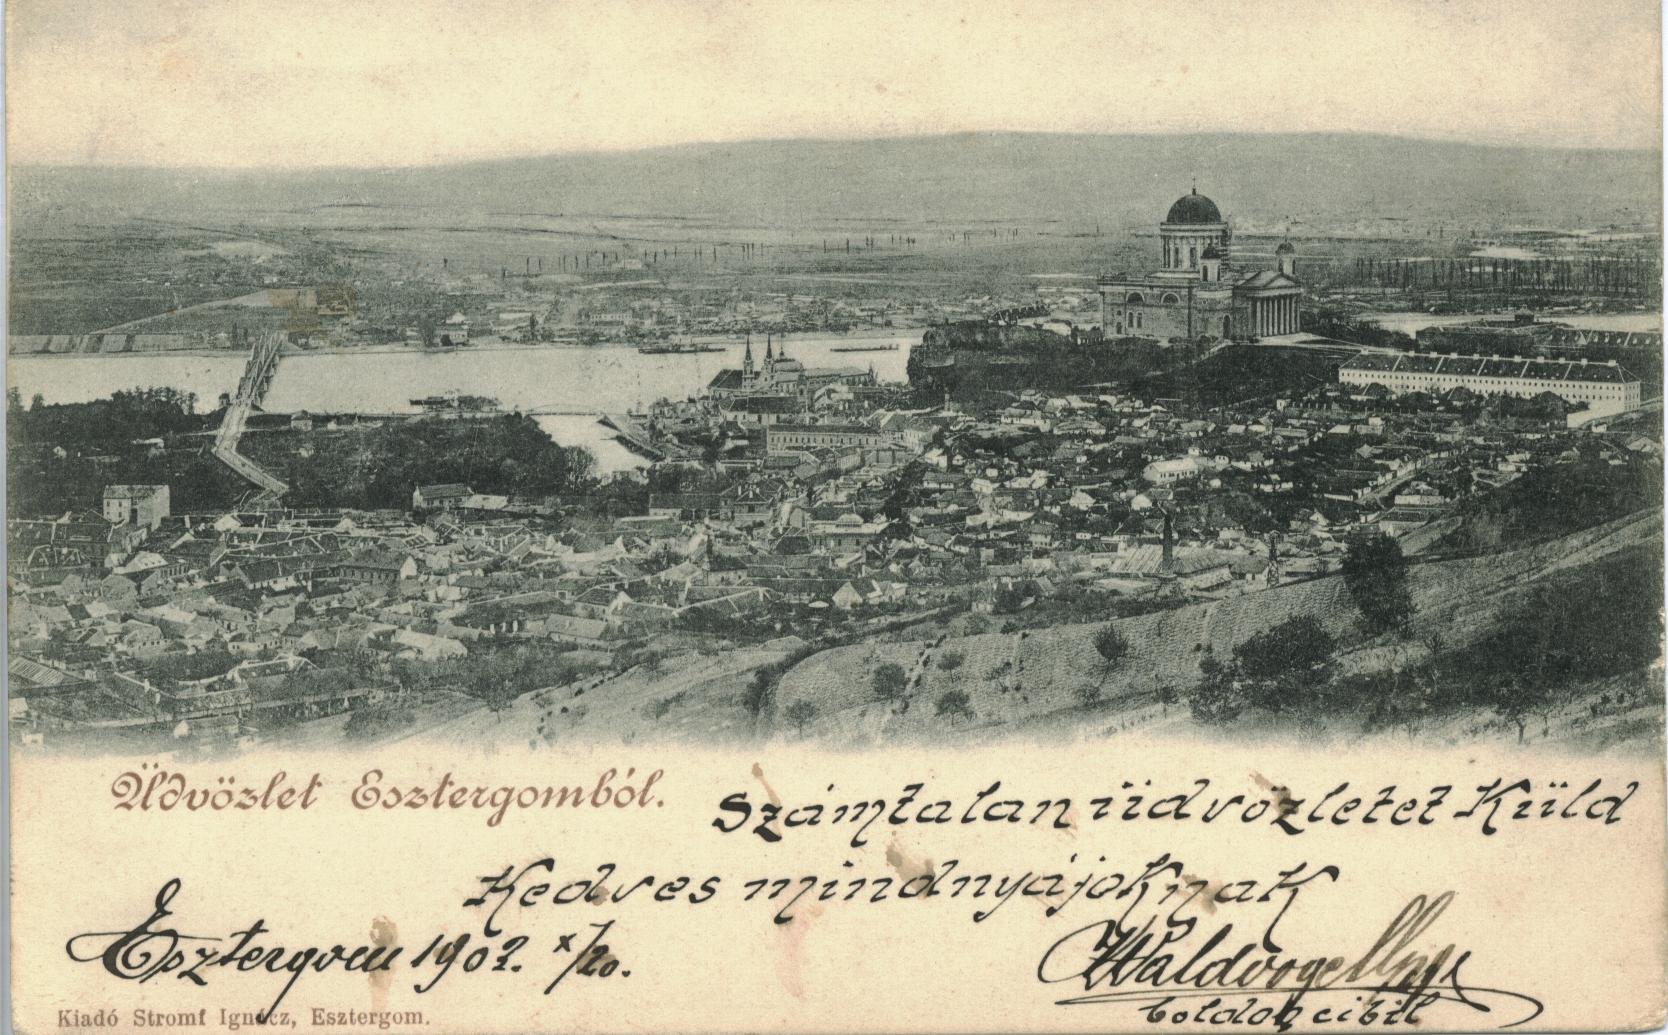 Üdvözlet Esztergomból.
Számtalan üdvözletet Küld
Kedves mindnyájoknak
Esztergom 1902. X/20.
Waldvogel
boldog cibil
Kiadó Stromf Ignácz, Esztergom.